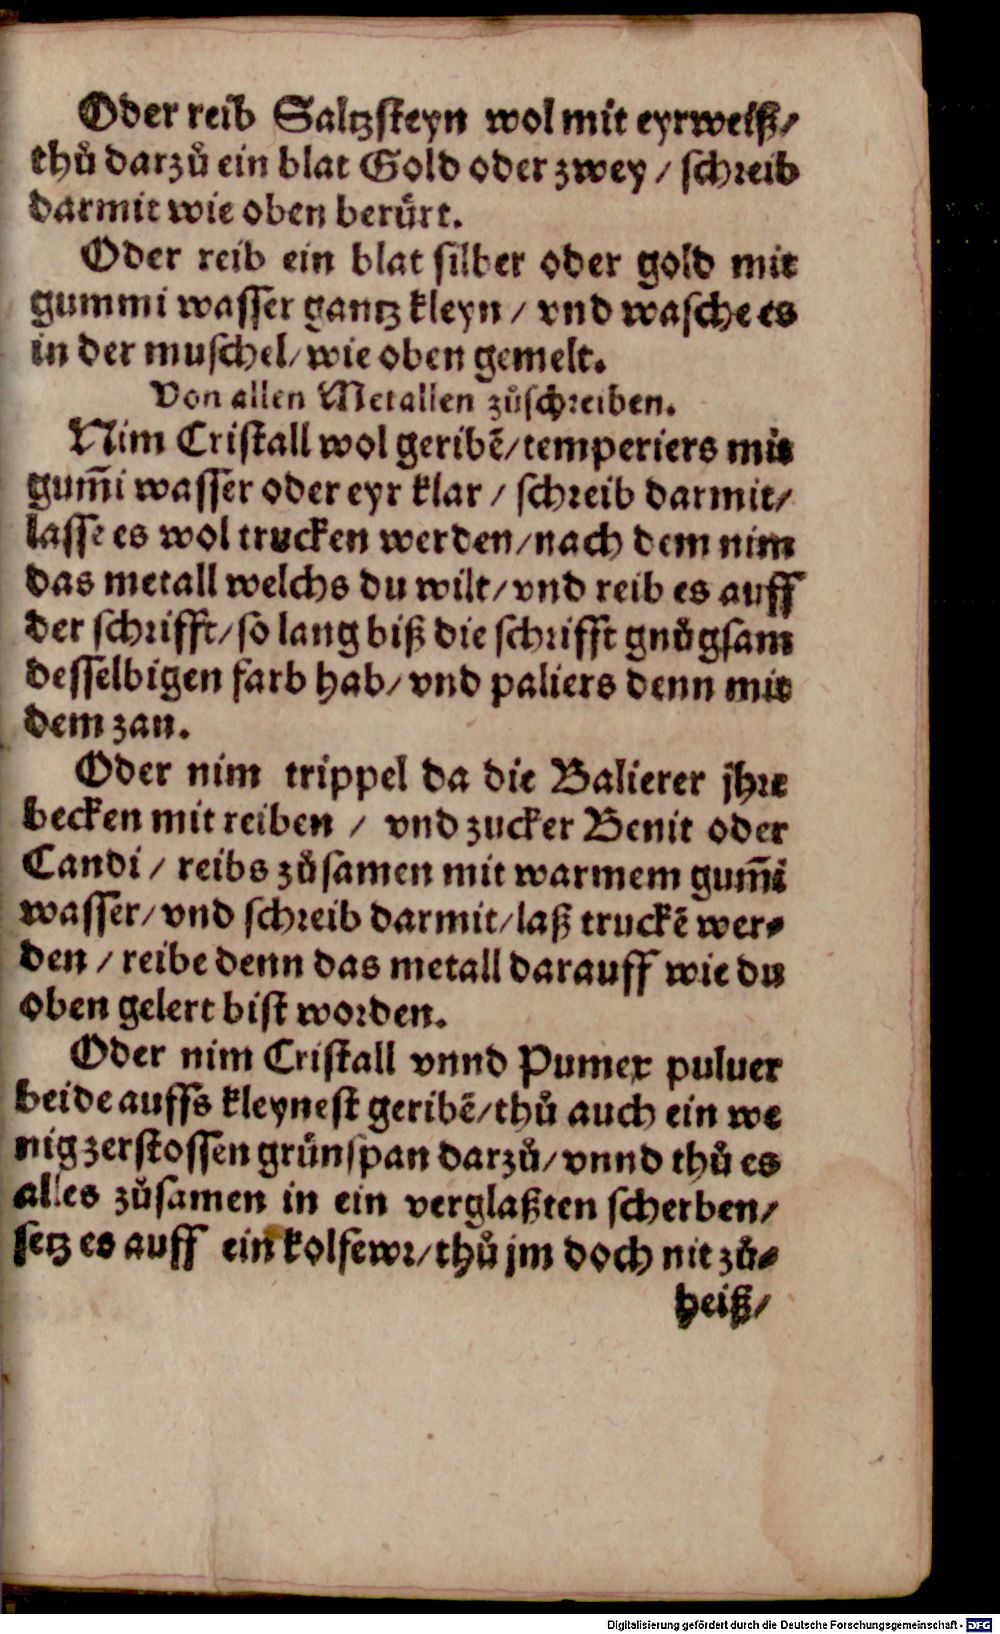 Oder reib Saltzsteyn wol mit eyrweiß/
thů darzů ein blat Gold oder zwey / schreib
darmit wie oben berürt.
Oder reib ein blat silber oder gold mit
gummi wasser gantz kleyn / vnd wasche es
in der muschel/ wie oben gemelt.
Von allen Metallen zůschreiben.
Nim Cristall wol geribē/temperiers mit
gum̄i wasser oder eyr klar / schreib darmit/
lasse es wol trucken werden/nach dem nim
das metall welchs du wilt/ vnd reib es auff
der schrifft/ so lang biß die schrifft gnůgsam
desselbigen farb hab/ vnd paliers denn mit
dem zan.
Oder nim trippel da die Balierer jhre
becken mit reiben / vnd zucker Benit oder
Candi / reibs zůsamen mit warmem gum̄i
wasser/ vnd schreib darmit/laß truckē wer-
den / reibe denn das metall darauff wie du
oben gelert bist worden.
Oder nim Cristall vnnd Pumex puluer
beide auffs kleynest geribē/thů auch ein we
nig zerstossen grünspan darzů/ vnnd thů es
alles zůsamen in ein verglaßten scherben/
setz es auff ein kolfewr/thů jm doch nit zů-
heiß/
Digitalisierung gefördert durch die Deutsche Forschungsgemeinschaft - DFG